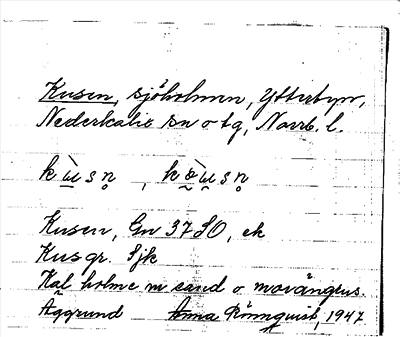 Kusen, sjöholmen, Ytterbyn,
Nederkalix sn o tg, Norrb. l.
kùsn̥ , kòusn̥
Kusen, Gn 37 SO, ek
Kusgr. Sjk
Kal holme m sand o
Äggrund Anna Rönnquist, 1947